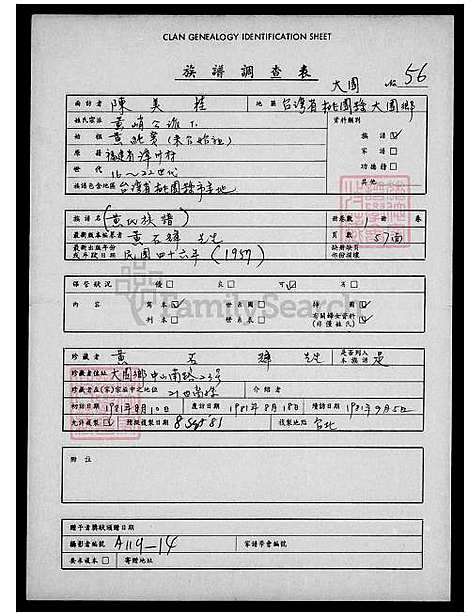 CLAN GENEALOGY IDENTIFICATION SHEET
族譜調查表
大園 № 56
面訪者 陳美桂 地區 台灣省桃園縣大園鄉
姓氏宗派 黃峭公派下 資料類別
始祖 (來台始祖) 族譜
原籍 福建省漳州府 家譜
世代 16~22世代 功德譜
族譜包含地區 台灣省桃園縣市等地 其他
族譜名 (黃氏族譜) 冊卷數 1 卷
最新版本編纂者 黃石輝先生 頁數 57面
最新出版年份或手段日期 民國四十六年 (1957) 缺冊缺頁你份損壞
保管狀況 優 良 可 劣
內容 寫本 世名圖 排圖
刊本 世系表 有關婦女資料(非僅姓氏)
FamilySearch
珍藏者 黃石輝先生 是否列入本族譜 是
珍藏者住址 大園鄉中山南路23号
珍藏者在(家)宗族中之地位 21世裔孫 介紹者
初訪日期 1981年8月10日 度訪日期 1981年8月18日 續訪日期 1981年9月5日
允許複製 預擬複製日期 8 Sept 81 複製地點 台北
附註
贈予者獎狀頒贈日期
攝影者編號 A119-14 家譜學會編號
要求複本 寄贈地址